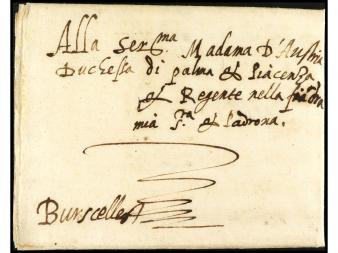 Alla Ser.ma Madama D'Austria
Duchessa di palma et Piacenza
et Regente nella fiandra
mia S.ra et Padrona.
Burscelles